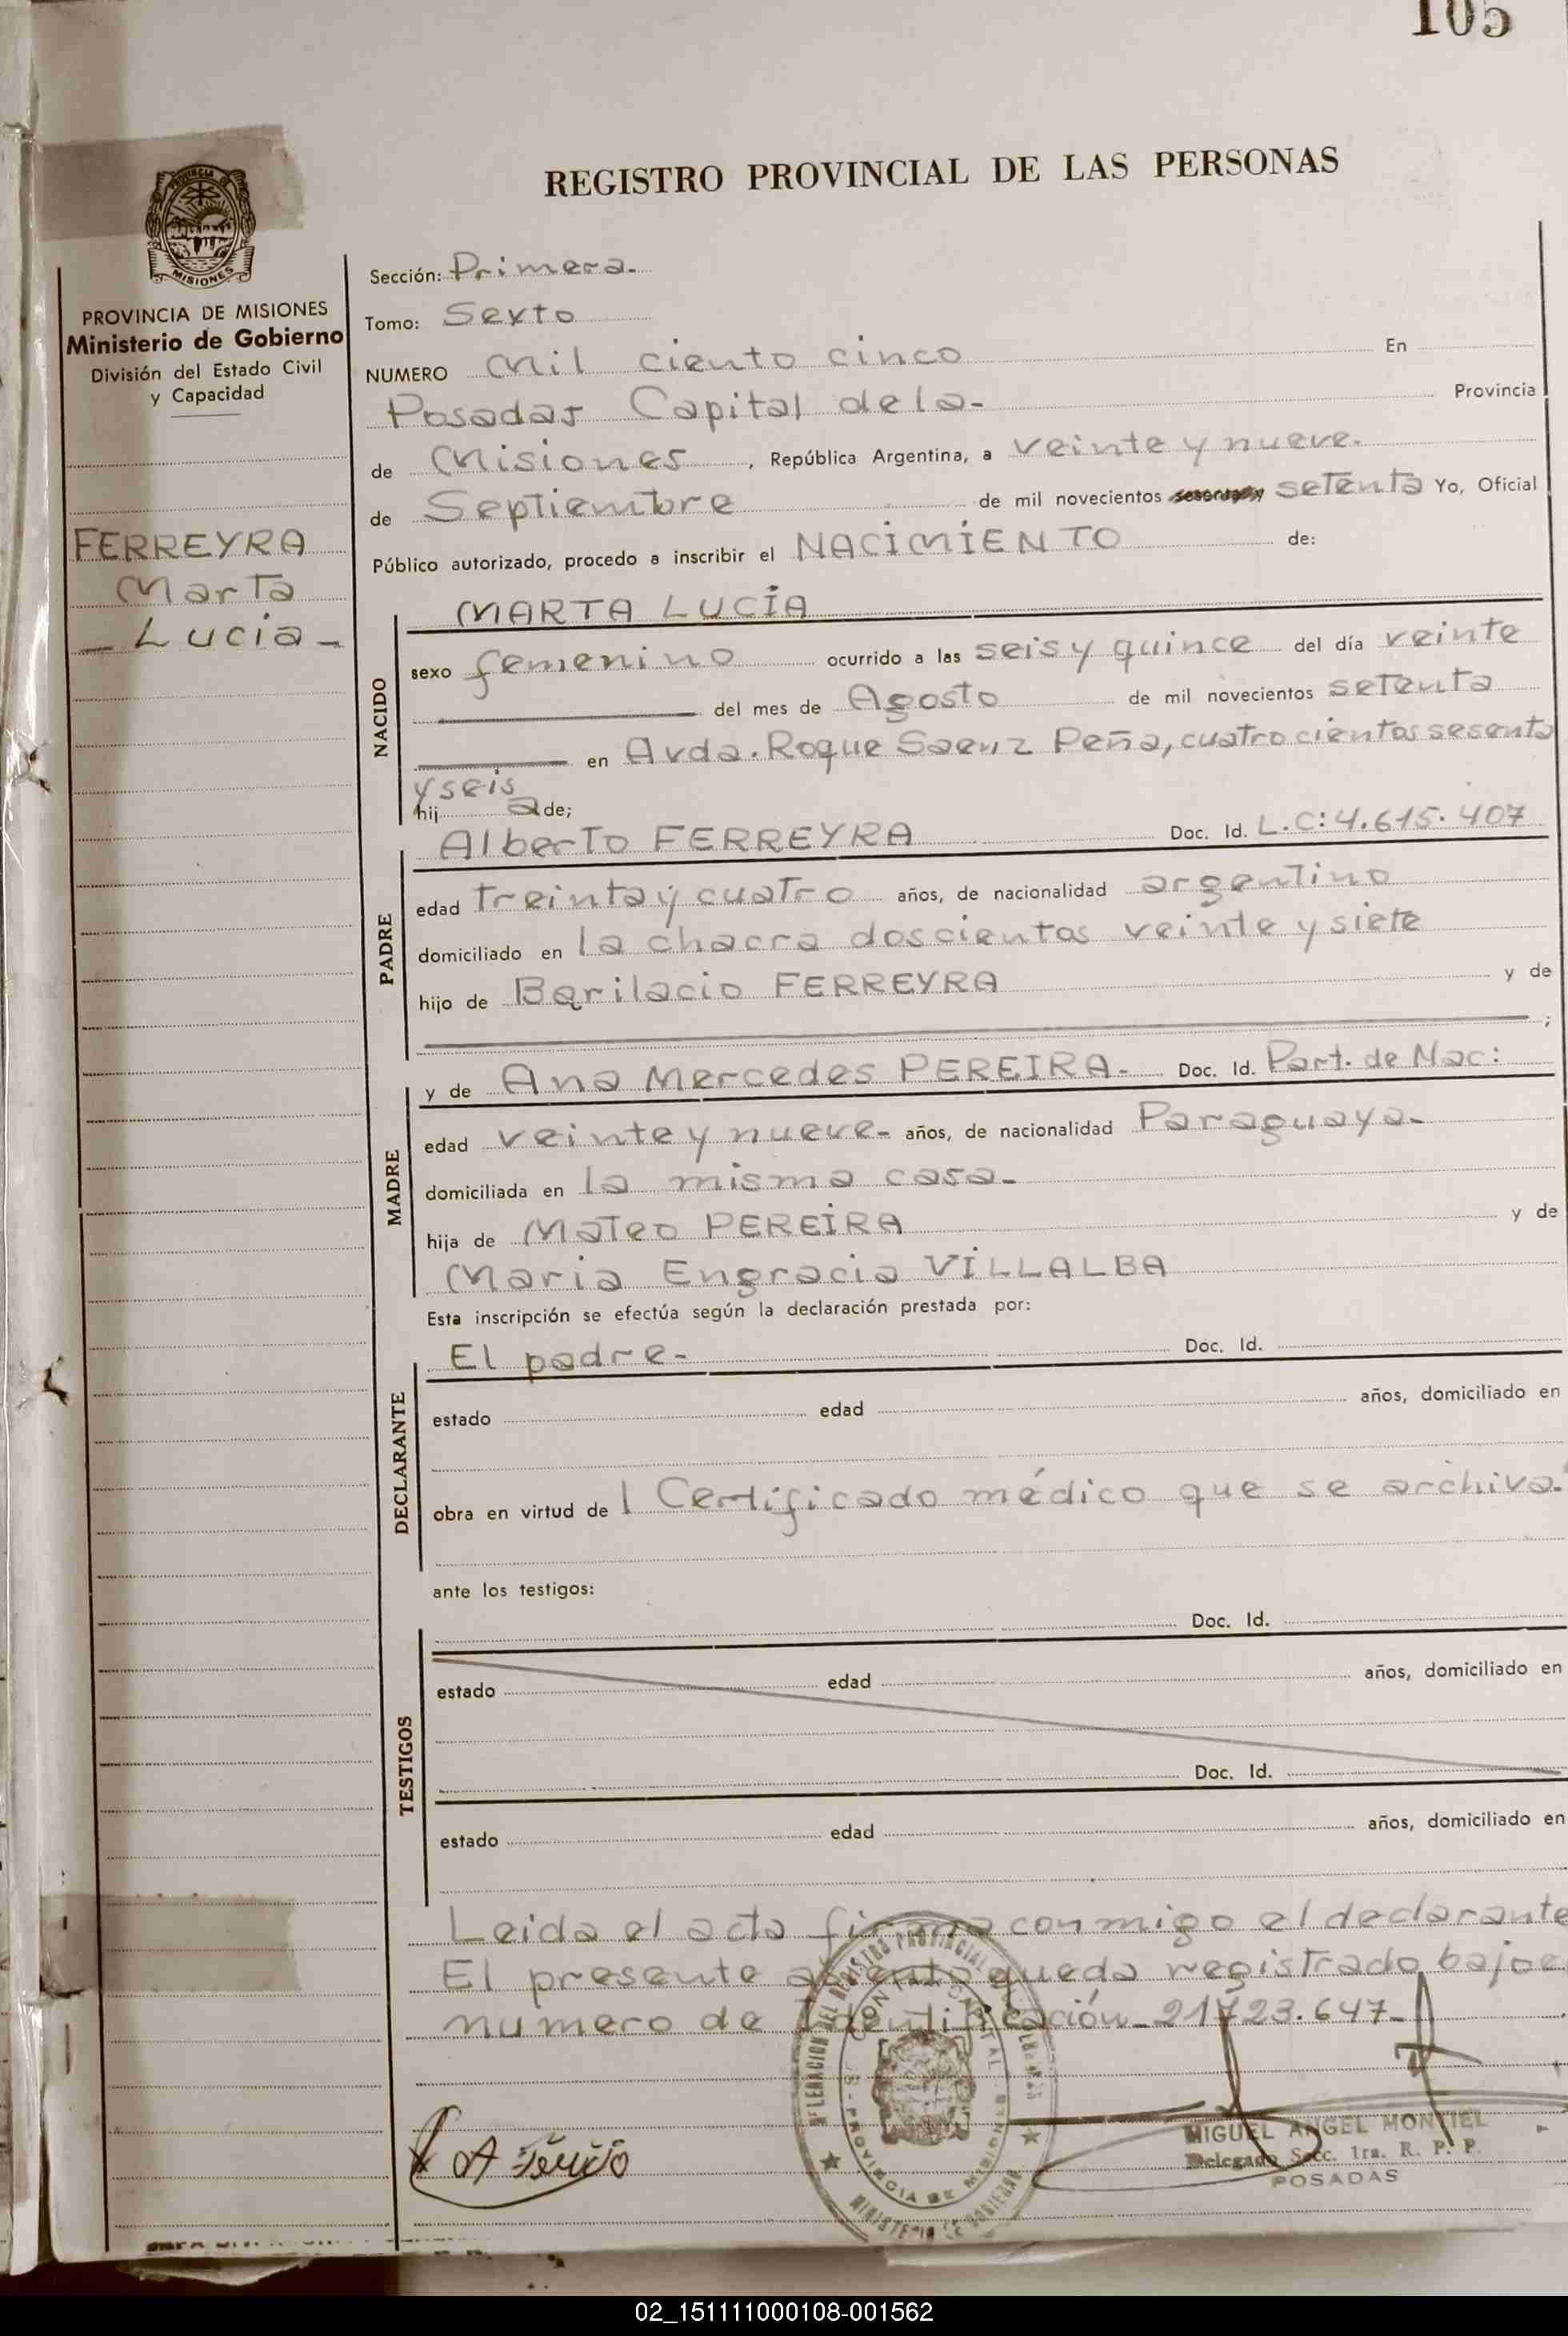 105
REGISTRO PROVINCIAL DE LAS PERSONAS
PROVINCIA DE
MISIONES
PROVINCIA DE MISIONES
Ministerio de Gobierno
División del Estado Civil
y Capacidad
FERREYRA
Marta
- Lucia -
Sección: Primera.
Tomo: Sexto
NUMERO Mil ciento cinco En
Posadas Capital de la- Provincia
de Misiones, República Argentina, a veinte y nueve.
de Septiembre de mil novecientos setenta Yo, Oficial
Público autorizado, procedo a inscribir el NACIMIENTO de:
NACIDO
MARTA LUCÍA
sexo femenino ocurrido a las seis y quince del día veinte
del mes de Agosto de mil novecientos setenta
en Avda. Roque Saenz Peña, cuatrocientos sesenta
y seis
hij a de;
PADRE
Alberto FERREYRA Doc. Id. L.C: 4.615.407
edad treinta y cuatro años, de nacionalidad argentino
domiciliado en la chacra doscientos veinte y siete
hijo de Barilacio FERREYRA y de
;
MADRE
y de Ana Mercedes PEREIRA.- Doc. Id. Part. de Nac:
edad veinte y nueve- años, de nacionalidad Paraguaya-
domiciliada en la misma casa.-
hija de Mateo PEREIRA y de
Maria Engracia VILLALBA
Esta inscripción se efectúa según la declaración prestada por:
DECLARANTE
El padre- Doc. Id.
estado edad años, domiciliado en
obra en virtud de l Certificado médico que se archiva.
ante los testigos:
TESTIGOS
Doc. Id.
estado edad años, domiciliado en
Doc. Id.
estado edad años, domiciliado en
Leida el acta firma conmigo el declarante
El presente asiento queda registrado bajo e
numero de Identificación_ 21.723.647_
PROVINCIA DE MISIONES
MIGUEL ANGEL MONTIEL
Delegado Secc. 1ra. R. P. P.
POSADAS
02_151111000108-001562